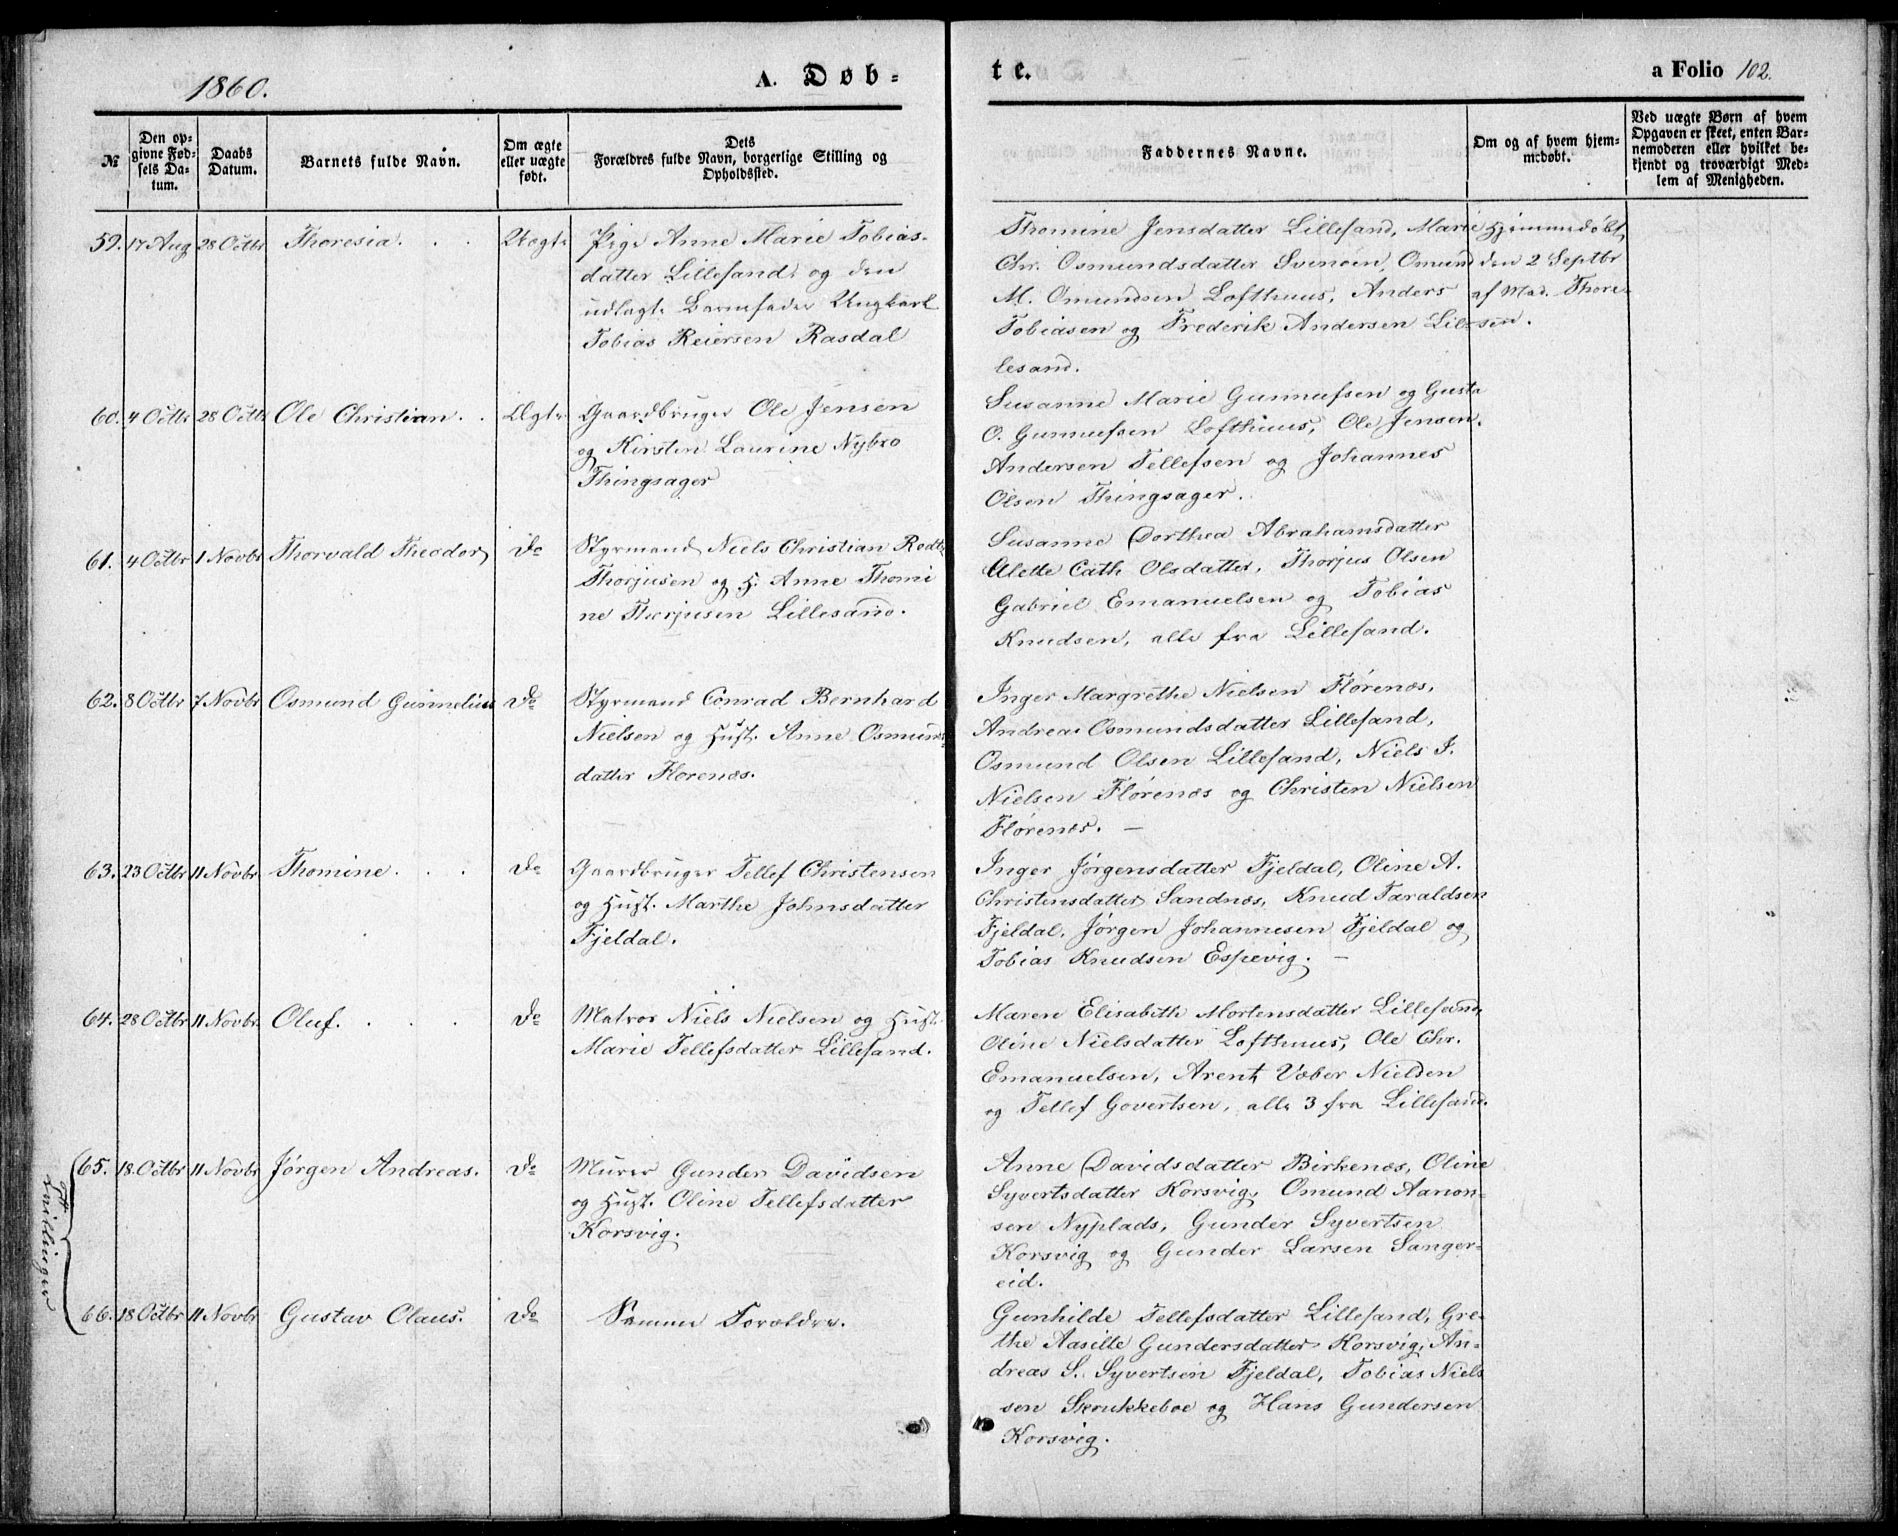 1860.
A. Døb-
te.
a Folio 102.
№
Den op-
givne Fød-
sels Da-
tum.
Daabs
Datum.
Barnets fulde Navn.
Om ægte
eller uægte
født.
Dets
Forældres fulde Navn, borgerlige Stilling og
Opholdssted.
Faddernes Navne.
Om og af hvem hjem-
medøbt.
Ved uægte Børn af hvem
Opgaven er skeet, enten Bar-
nemoderen eller hvilket be-
kjendt og troværdigt Med-
lem af Menigheden.
59. 17 Aug 28 Octbr Thoresia. Uægte
Pige Anne Marie Tobias-
datter Lillesand, og den
udlagte Barnefader Ungkarl
Tobias Reiersen Rasdal
Thomine Jensdatter Lillesand, Marie
Chr. Osmundsdatter Svinøen, Omund
M. Omundsen Lofthuus, Anders
Tobiasen og Frederik Andersen Lil-
lesand.
Hjemmedøbt
den 2 Septbr
af Mad. Thore-
sen.
60. 4 Octbr 28 Octbr Ole Christian. Ægte
Gaardbruger Ole Jensen
og Kirsten Laurine Nybro
Thingsager
Susanne Marie Gunnufsen og Gusta
O. Gunnufsen Lofthuus, Ole Jensen.
Andersen Tellefsen og Johannes
Olsen Thingsager.
61. 4 Octbr 1 Novbr Thorvald Theodor Do
Styrmand Niels Christian Rodtz
Thorjusen og H. Anne Thomi
ne Thorjusen Lillesand.
Susanne Dorthea Abrahamsdatter
Alette Cath Olsdatter, Thorjus Olsen
Gabriel Emanuelsen og Tobias
Knudsen, alle fra Lillesand.
62. 8 Octbr 7 Novbr Osmund Gunnelius Do
Styrmand Conrad Bernhard
Nielsen og Hust. Anne Osmunds
datter Florenæs.
Inger Margrethe Nielsen Flørenæs,
Andrea Osmundsdatter Lillesand,
Osmund Olsen Lillesand, Niels J.
Nielsen Flørenæs og Christen Nielsen
Flørenæs. —
63. 23 Octbr 11 Novbr. Thomine. Do
Gaardbruger Tellef Christensen
og Hust. Marthe Johnsdatter
Fjeldal.
Inger Jørgensdatter Fjeldal, Oline A.
Christensdatter Sandnæs, Knud Taraldsen
Fjeldal, Jørgen Johannesen Fjeldal og
Tobias Knudsen Espevig. —
64. 28 Octbr 11 Novbr. Oluf. Do
Matros Niels Nielsen og Hust.
Marie Tellefsdatter Lillesand.
Maren Elisabeth Mortensdatter Lillesand,
Oline Nielsdatter Lofthuus, Ole Chr.
Emanuelsen, Arent Væber Nielsen
og Tellef Govertsen, alle 3 fra Lillesand.
Tvillinger
65. 18. Octbr 11 Novbr Jørgen Andreas. Do
Murer Gunder Davidsen
og Hust. Oline Tellefsdatter
Korsvig.
Anne Davidsdatter Birkenæs, Oline
Syvertsdatter Korsvig, Omund Aanon-
sen Nyplads, Gunder Syvertsen
Korsvig og Gunder Larsen Sanger-
eid.
66. 18 Octbr 11 Novbr Gustav Olaus. Do
Samme Forældre.
Gunhilde Tellefsdatter Lillesand, Gre-
the Aasille Gundersdatter Korsvig, An-
dreas S. Syvertsen Fjeldal, Tobias Niel-
sen Skrukkeboe og Hans Gundersen
Korsvig.